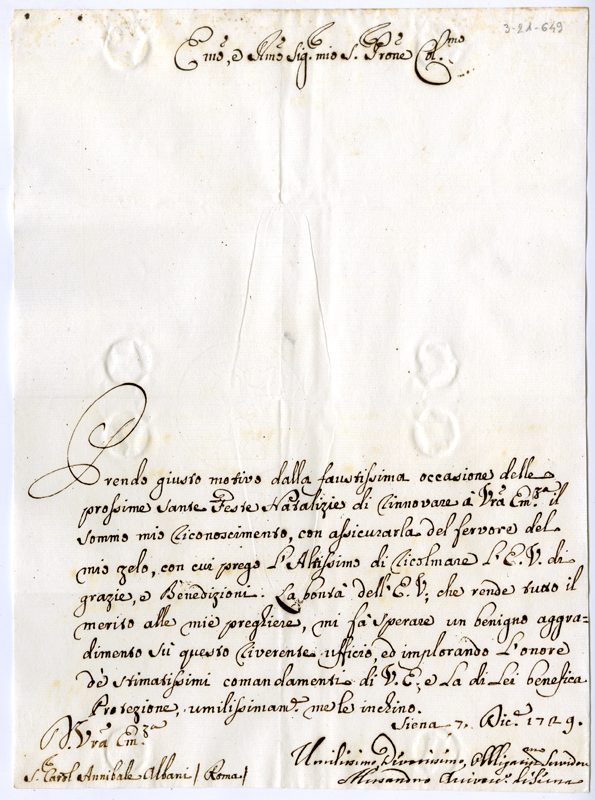 3-21-649
Emo, e Rmo Sig. mio S. Prone Col.mo
Prendo giusto motivo dalla faustissima occasione delle
prossime sante Feste Natalizie di rinnovare à Vrã Em.za il
sommo mio riconoscimento, con assicurarla del fervore del
mio zelo, con cui prego l'Altissimo di ricolmare l'E.V. di
grazie, e Benedizioni. La bontà dell'E.V., che rende tutto il
merito alle mie preghiere, mi fà sperare un benigno aggra=
dimento sù questo riverente ufficio, ed implorando l'onore
dè stimatissimi comandamenti di V.E., e la di Lei benefica
Protezione, umilissimam.e me le inchino.
Siena 7. Dic.e 1729.
D. Vrã Em.za
Umilissimo, Divotissimo, Obbligatis.mo Servidor
S.r Card. Annibale Albani / Roma /
Alessandro Arcivesc.o di Siena